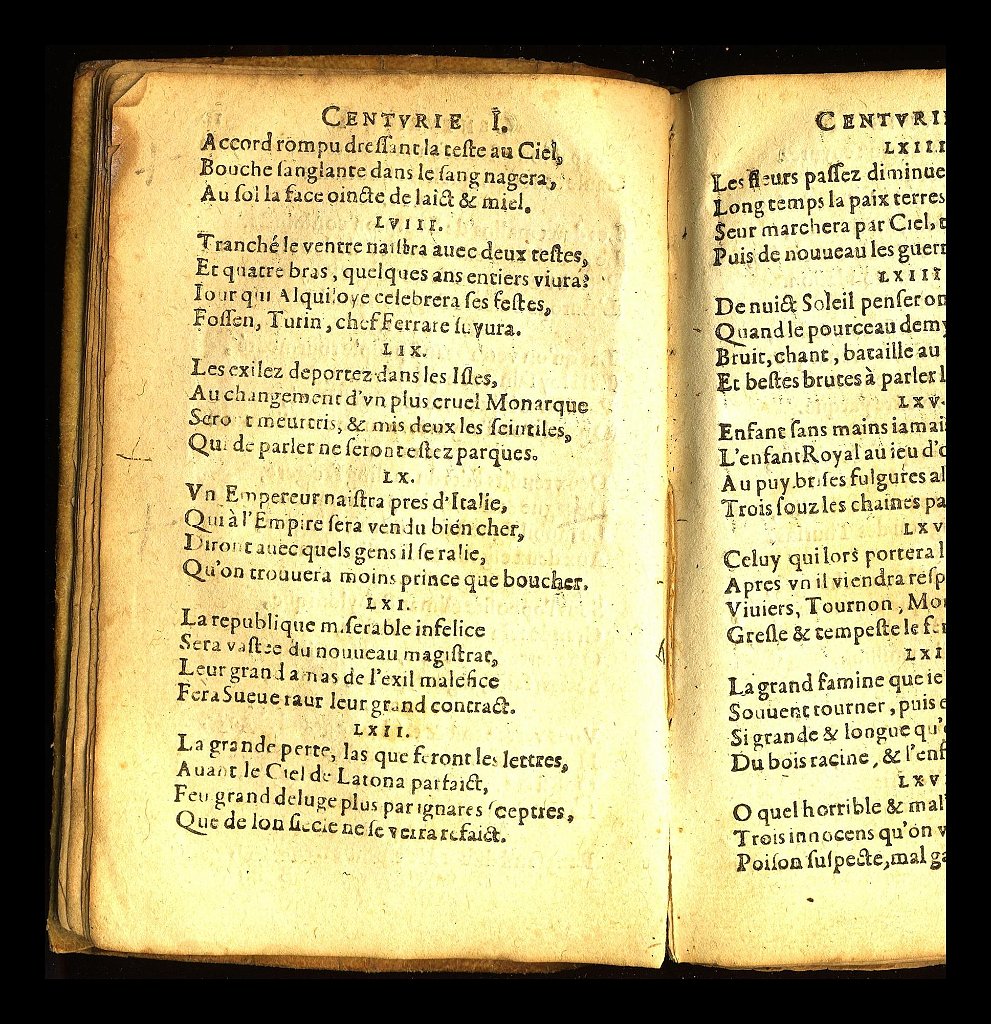 CENTVRIE I.
Accord rompu dreſſant la teſte au Ciel,
Bouche ſanglante dans le ſang nagera,
Au ſol la face oincte de laict & miel.
LVIII.
Tranché le ventre naiſtra auec deux teſtes,
Et quatre bras, quelques ans entiers viura?
Iour qui Alquiloye celebrera ſes feſtes,
Foſſen, Turin, chef Ferrare ſuyura.
LIX.
Les exilez deportez dans les Iſles,
Au changement d'vn plus cruel Monarque
Seront meurtris, & mis deux les ſcintiles,
Qui de parler ne ſeront eſtez parques.
LX.
Vn Empereur naiſtra pres d'Italie,
Qui à l'Empire ſera vendu bien cher,
Diront auec quels gens il ſe ralie,
Qu'on trouuera moins prince que boucher.
LXI.
La republique miſerable infelice
Sera vaſtee du nouueau magiſtrat,
Leur grand amas de l'exil malefice
Fera Sueue raur leur grand contract.
LXII.
La grande perte, las que feront les lettres,
Auant le Ciel de Latona parfaict,
Feu grand deluge plus par ignares ſceptres,
Que de lon ſiecle ne ſe verra refaict.
CENTVRI
LXIII
Les fleurs paſſez diminue
Long temps la paix terres
Seur marchera par Ciel, t
Puis de nouueau les guerr
LXIII
De nuict Soleil penſeron
Quand le pourceau demy
Bruit, chant, bataille au
Et beſtes brutes à parler l
LXV.
Enfant ſans mains iamais
L'enfant Royal au ieu d'o
Au puy briſes fulgures al
Trois ſouz les chaines pa
LXV
Celuy qui lors portera l
Apres vn il viendra reſp
Viuiers, Tournon, Mon
Greſle & tempeſte le fer
LXI
La grand famine que ie
Souuent tourner, puis e
Si grande & longue qu'o
Du bois racine, & l'enf
LXV
O quel horrible & mal
Trois innocens qu'on v
Poiſon ſuſpecte, mal ga